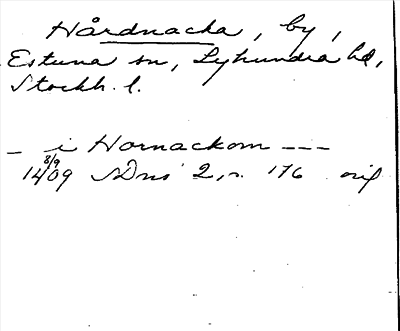 Hårdnacka, by,
Estuna sn, Lyhundra hd,
Stockh. l.
– i Hornackom ---
14 8/9 09 SDns 2, s. 176 orig